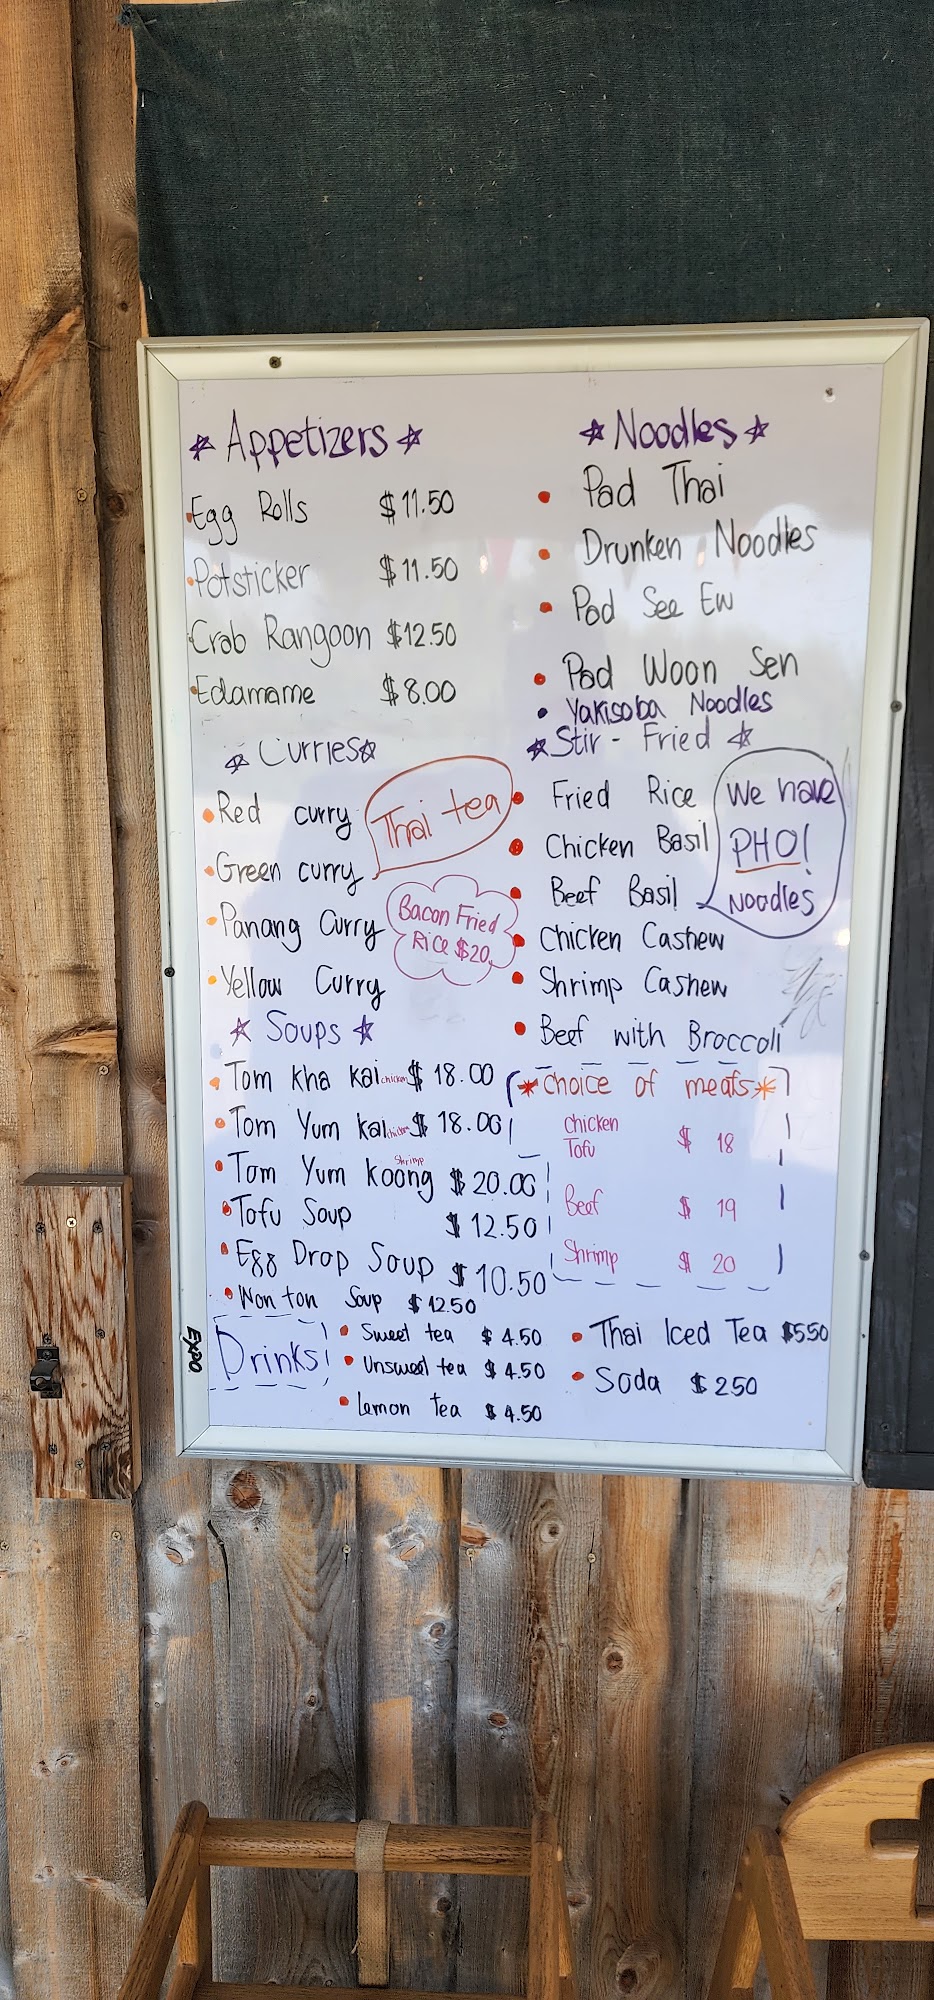 ☆ Appetizers ☆
• Egg Rolls $11.50
• Potsticker $11.50
• Crab Rangoon $12.50
• Edamame $8.00
☆ Curries ☆
• Red curry
• Green curry
• Panang Curry
• Yellow Curry
Thai tea
Bacon Fried
Rice $20
☆ Soups ☆
• Tom Kha Kai chicken $18.00
• Tom Yum Kai chicken $18.00
• Tom Yum Koong Shrimp $20.00
• Tofu Soup $12.50
• Egg Drop Soup $10.50
• Won ton Soup $12.50
☆ Noodles ☆
• Pad Thai
• Drunken Noodles
• Pad See Ew
• Pad Woon Sen
• Yakisoba Noodles
☆ Stir - Fried ☆
• Fried Rice
• Chicken Basil
• Beef Basil
• Chicken Cashew
• Shrimp Cashew
• Beef with Broccoli
We have
PHO!
Noodles
* Choice of meats *
Chicken
Tofu $ 18
Beef $ 19
Shrimp $ 20
Drinks
• Sweet tea $ 4.50
• Unsweet tea $ 4.50
• Lemon tea $ 4.50
• Thai Iced Tea $5.50
• Soda $ 2.50
EXPO